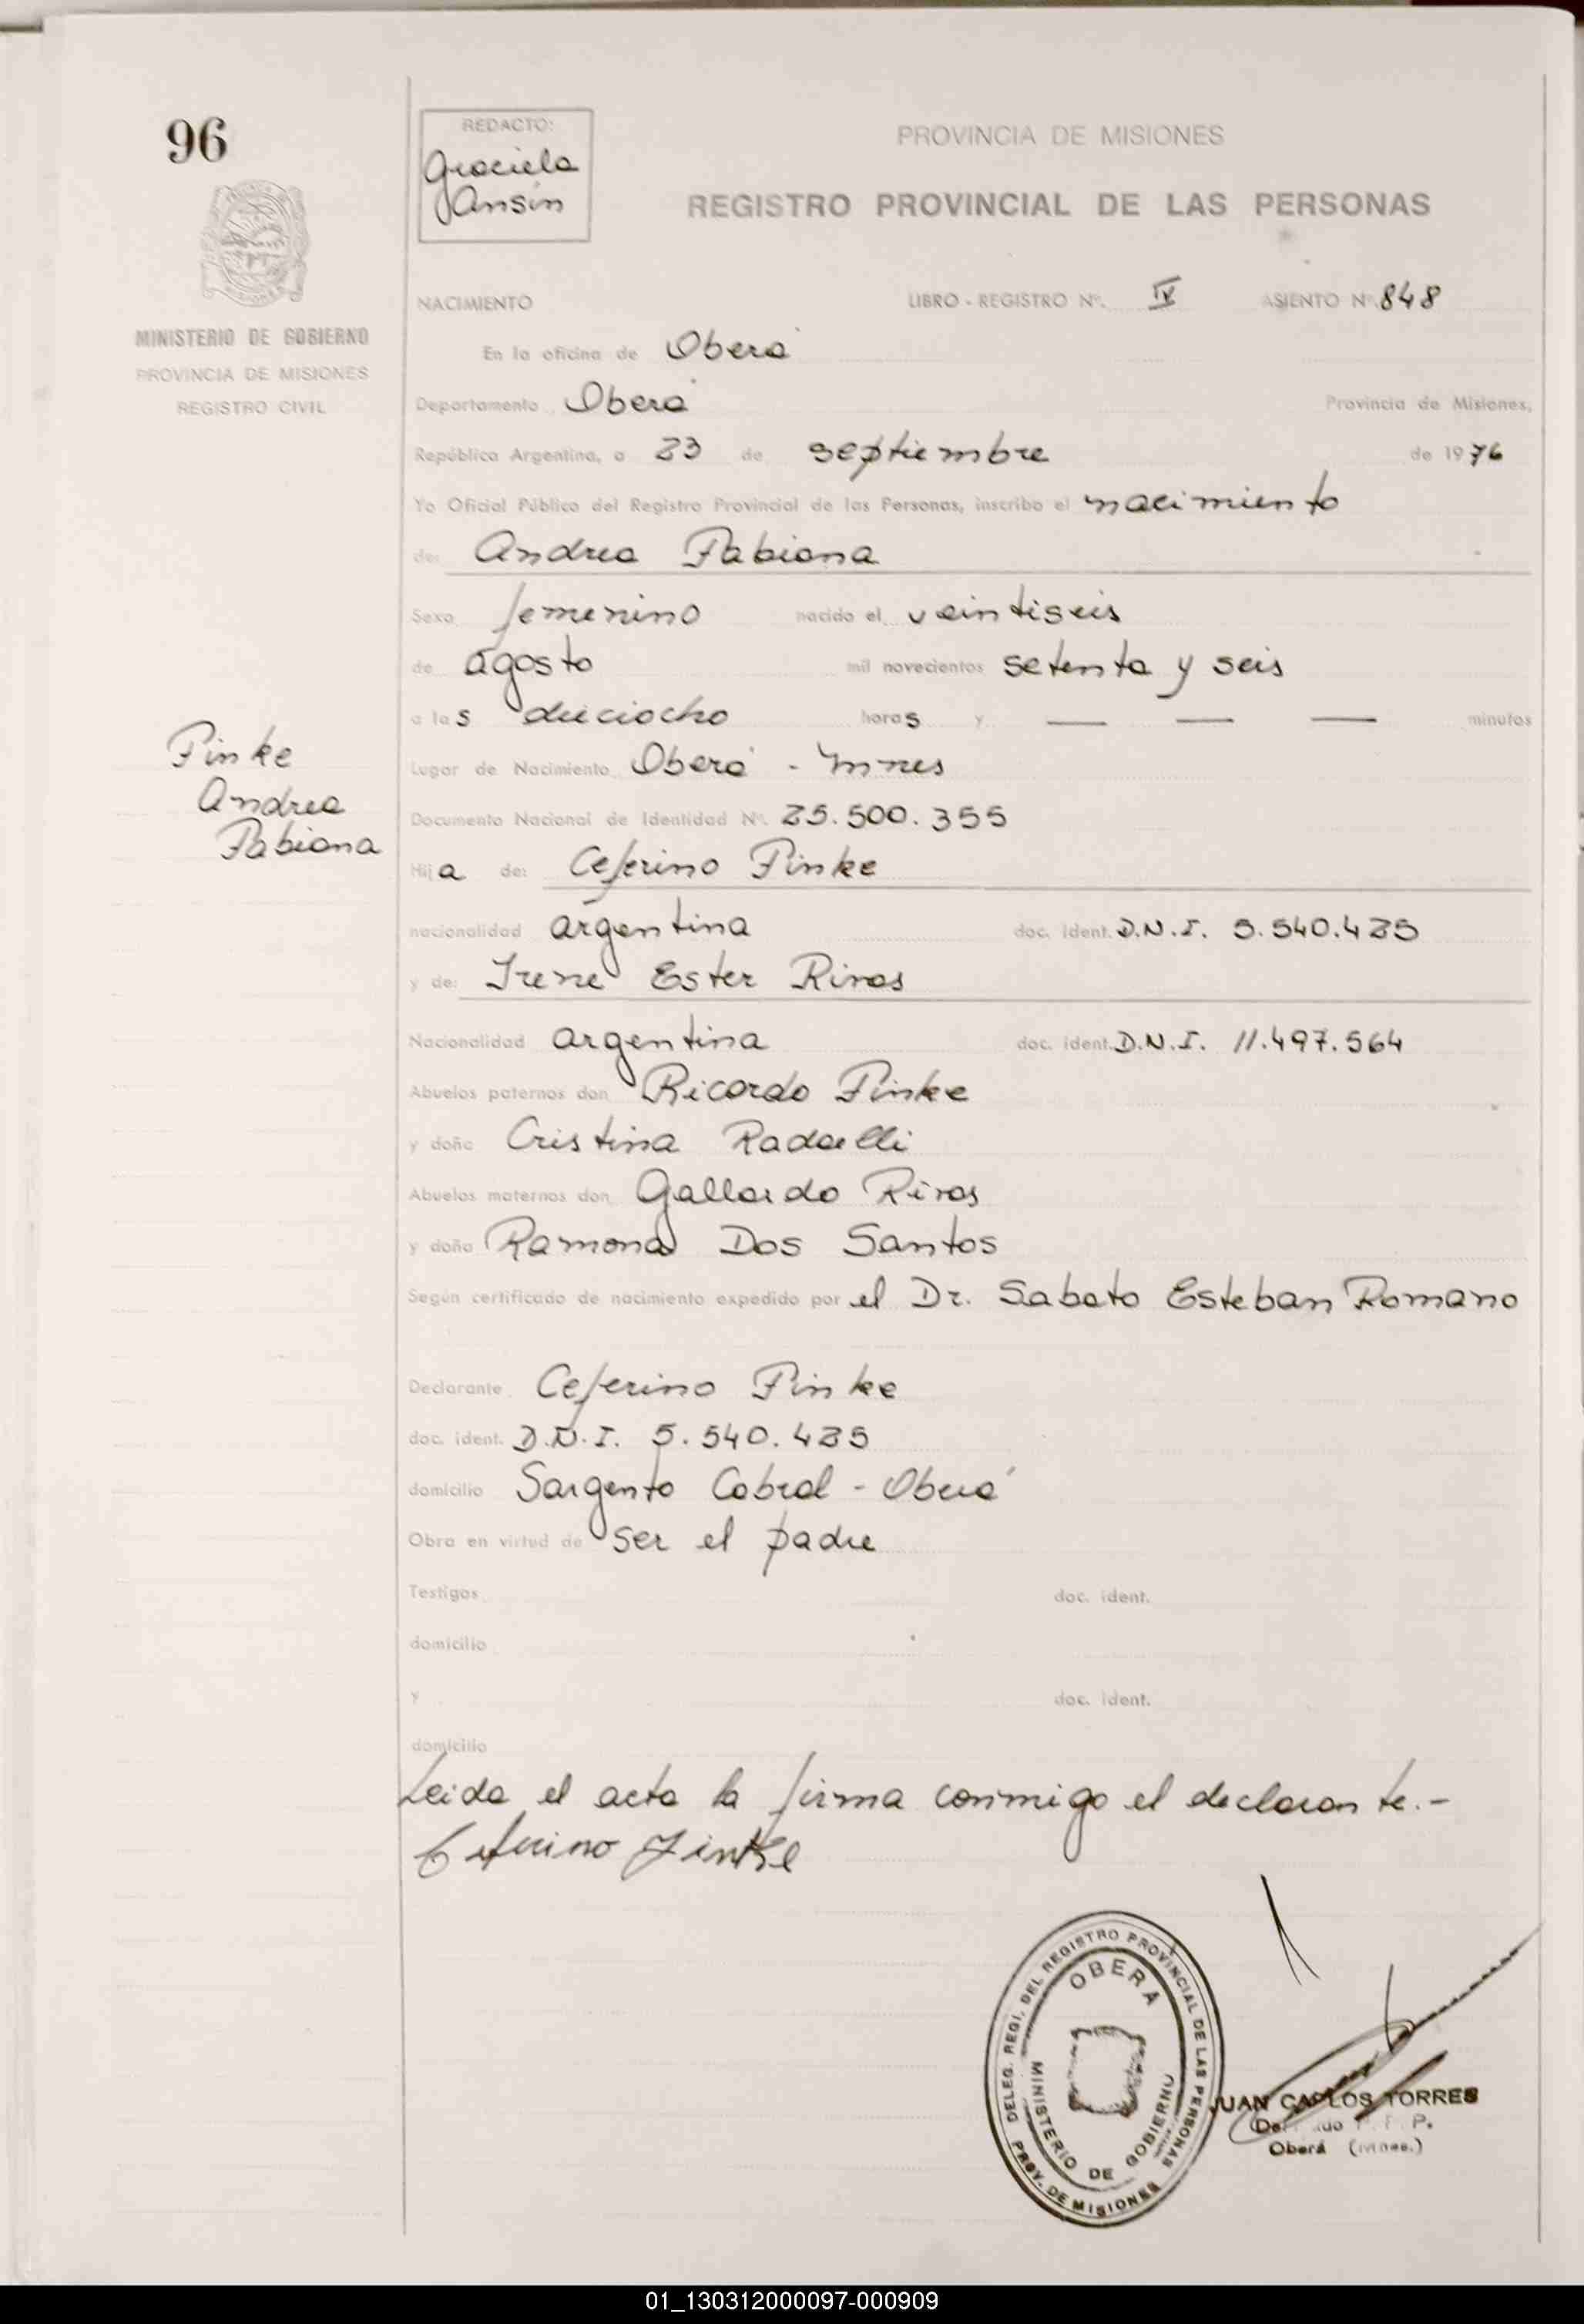 96
REDACTO:
Graciela
Ansin
PROVINCIA DE MISIONES
REGISTRO PROVINCIAL DE LAS PERSONAS
MINISTERIO DE GOBIERNO
PROVINCIA DE MISIONES
REGISTRO CIVIL
NACIMIENTO LIBRO - REGISTRO Nº. IV ASIENTO Nº 848
En la oficina de Oberá
Departamento Oberá Provincia de Misiones,
República Argentina, a 23 de septiembre de 1976
Yo Oficial Público del Registro Provincial de las Personas, inscribo el nacimiento
de: Andrea Fabiana
Sexo femenino nacido el veintiseis
de agosto mil novecientos setenta y seis
a las dieciocho horas y — — — minutos
Finke
Andrea
Fabiana
Lugar de Nacimiento Oberá - Mnes
Documento Nacional de Identidad Nº. 25.500.355
Hija de: Ceferino Finke
nacionalidad argentina doc. ident. D.N.I. 5.540.425
y de: Irene Ester Rivas
Nacionalidad argentina doc. ident. D.N.I. 11.497.564
Abuelos paternos don Ricardo Finke
y doña Cristina Radaelli
Abuelos maternos don Gallardo Rivas
y doña Ramona Dos Santos
Según certificado de nacimiento expedido por el Dr. Sabato Esteban Romano
Declarante Ceferino Finke
doc. ident. D.N.I. 5.540.425
domicilio Sargento Cabral - Oberá
Obra en virtud de ser el padre
Testigos doc. ident.
domicilio
y doc. ident.
domicilio
Leida el acta la firma conmigo el declarante.-
Ceferino Finke
DELEG. REGI. DEL REGISTRO PROVINCIAL DE LAS PERSONAS
OBERA
MINISTERIO DE GOBIERNO
PROV. DE MISIONES
JUAN CARLOS TORRES
Oberá (Mnes.)
01_130312000097-000909